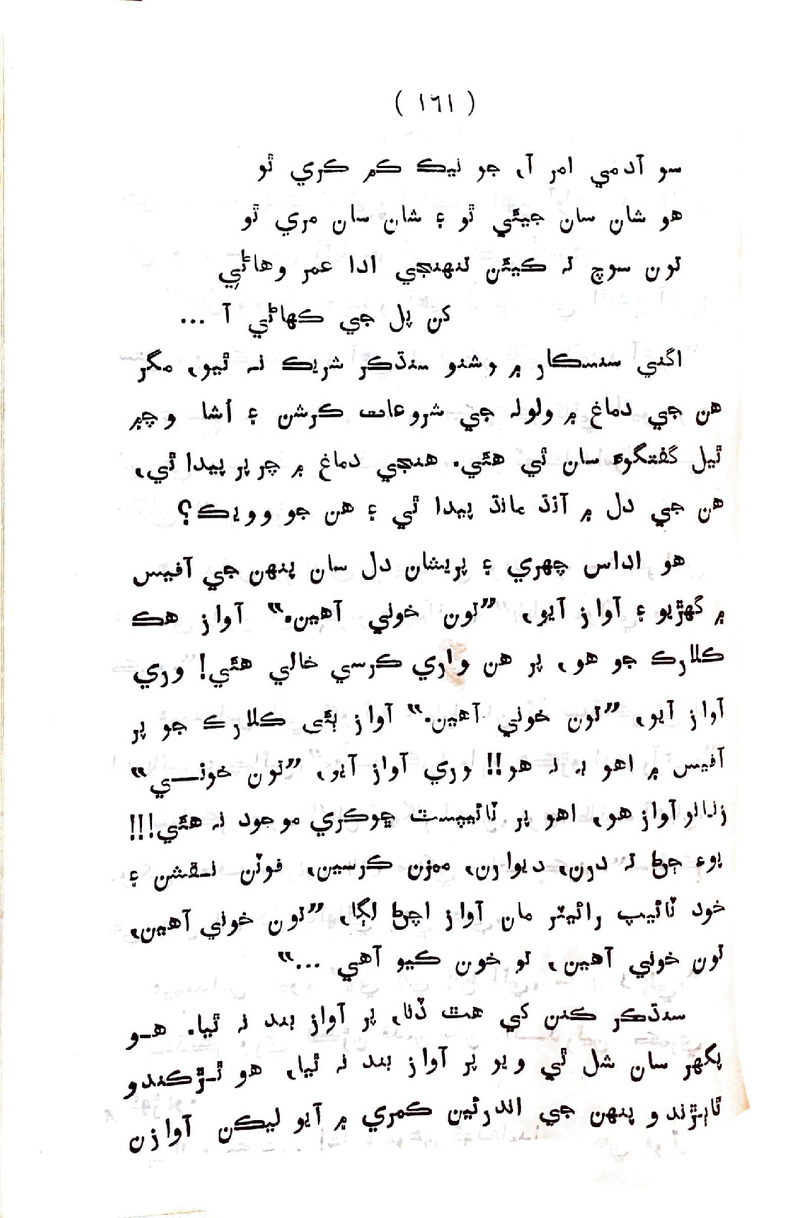 ( ١٦١ )
سو آدمي امر آ، جو نيڪ ڪم ڪري ٿو
هو شان سان جيئي ٿو ۽ شان سان مري ٿو
تون سوچ تہ ڪيئن تنهنجي ادا عمر وهاڻي
کن پل جي ڪهاڻي آ ...
اگني سنسڪار ۾ وشنو سنڌڪر شريڪ نہ ٿيو، مگر
هن جي دماغ ۾ ولولہ جي شروعات ڪرشن ۽ اُشا وچ۾
ٿيل گفتگوءَ سان ٿي هئي. هنجي دماغ ۾ چرپر پيدا ٿي،
هن جي دل ۾ آنڌ مانڌ پيدا ٿي ۽ هن جو وويڪ؟
هو اداس چهري ۽ پريشان دل سان پنهن جي آفيس
۾ گهڙيو ۽ آواز آيو، ”تون خوني آهين.“ آواز هڪ
ڪلارڪ جو هو، پر هن واري ڪرسي خالي هئي! وري
آواز آيو، ”تون خوني آهين.“ آواز ٻئي ڪلارڪ جو پر
آفيس ۾ اهو بہ نہ هو!! وري آواز آيو، ”تون خونــي“
زنانو آواز هو، اهو پر ٽائيپسٽ ڇوڪري موجود نہ هئي!!!
پوءِ ڄڻ تہ درن، ديوارن، ميزن ڪرسين، فوٽن نقشن ۽
خود ٽائيپ رائيٽر مان آواز اچڻ لڳا، ”تون خوني آهين،
تون خوني آهين، تو خون ڪيو آهي ...“
سنڌڪر ڪنن کي هٿ ڏنا، پر آواز بند نہ ٿيا. هــو
پگهر سان شل ٿي ويو پر آواز بند نہ ٿيا، هو ٿــڙڪندو
ٿاٻڙندو پنهن جي اندرئين ڪمري ۾ آيو ليڪن آوازن